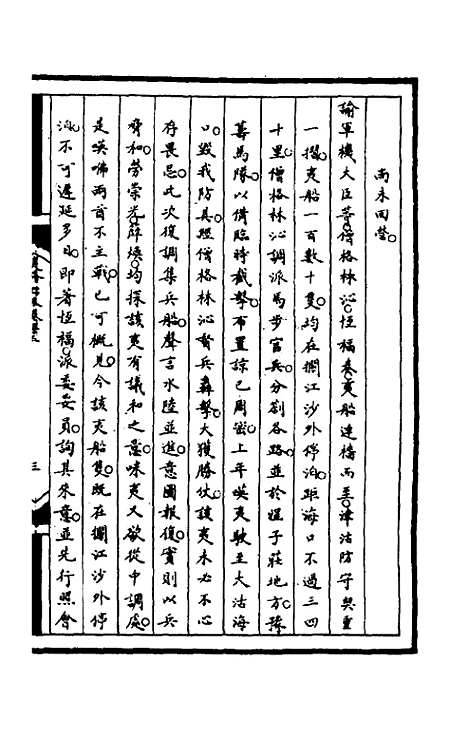 尚未回營
諭軍機大臣等僧格林沁恆福奏夷船連檣而至津沽防守喫重
一摺夷船一百數十隻均在攔江沙外停泊距海口不過三四
十里僧格林沁調派馬步官兵分劄各路並於營子莊地方豫
籌馬隊以備臨時截擊布置諒已周密上年㗸夷駛至大沽海
口毀我防具經僧格林沁督兵轟擊大獲勝仗該夷未必不心
存畏忌此次復調集兵船聲言水陸並進意圖報復實則以兵
脅和勞崇光薛煥均探該夷有議和之意咪夷又欲從中調處
是㗸咈兩酋不主戰已可概見今該夷船隻既在攔江沙外停
泊不可遲延多日即著恆福派委妥員詢其來意並先行照會
三